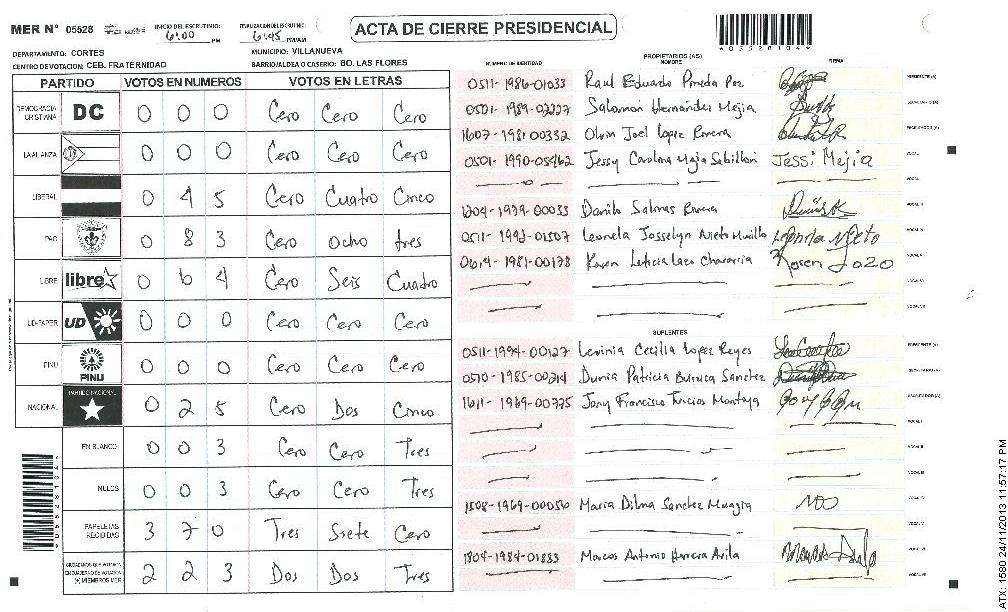 MER Nº 05528
INICIO DEL ESCRUTINIO: 6:00 PM
FINALIZACION DEL ESCRUTINIO: 6:45 PM/AM
ACTA DE CIERRE PRESIDENCIAL
DEPARTAMENTO: CORTES
MUNICIPIO: VILLANUEVA
CENTRO DE VOTACION: CEB. FRATERNIDAD
BARRIO/ALDEA O CASERIO: BO. LAS FLORES
PARTIDO VOTOS EN NUMEROS VOTOS EN LETRAS
DEMOCRACIA CRISTIANA DC 0 0 0 Cero Cero Cero
LA ALIANZA 0 0 0 Cero Cero Cero
LIBERAL 0 4 5 Cero Cuatro Cinco
PAC 0 8 3 Cero Ocho tres
LIBRE libre 0 6 4 Cero Seis Cuatro
UD-FAPER UD 0 0 0 Cero Cero Cero
PINU PINU 0 0 0 Cero Cero Cero
NACIONAL PARTIDO NACIONAL 0 2 5 Cero Dos Cinco
EN BLANCO 0 0 3 Cero Cero Tres
NULOS 0 0 3 Cero Cero Tres
PAPELETAS RECIBIDAS 3 7 0 Tres Siete Cero
CIUDADANOS QUE VOTARON EN CUADERNO DE VOTACION (+) MIEMBROS MER 2 2 3 Dos Dos Tres
PROPIETARIOS (AS)
NUMERO DE IDENTIDAD NOMBRE FIRMA
0511-1986-01033 Raul Eduardo Pineda Paz PRESIDENTE (A)
0501-1989-02227 Salomon Hernandez Mejia SECRETARIO (A)
1607-1981-00332 Olvin Joel Lopez Rivera ESCRUTADOR (A)
0501-1990-05462 Jessy Carolina Mejia Sabillon Jessi Mejia VOCAL I
VOCAL II
1204-1979-00033 Danilo Salinas Rivera VOCAL III
0511-1992-01507 Leonela Josselyn Nieto Murillo Leonela Nieto VOCAL IV
0614-1981-00178 Karen Leticia Lazo Chavarria VOCAL V
VOCAL VI
VOCAL VII
SUPLENTES
0511-1994-00127 Levinia Cecilia Lopez Reyes PRESIDENTE (A)
0510-1985-00214 Dunia Patricia Sanchez SECRETARIO (A)
1611-1969-00775 Jony Francisco Montoya ESCRUTADOR (A)
VOCAL I
VOCAL II
VOCAL III
1508-1969-00050 Maria Dilma Sanchez VOCAL IV
VOCAL V
1804-1984-01833 Marcos Antonio Herrera Avila VOCAL VI
VOCAL VII
ATX: 1580 24/11/2013 11:57:17 PM